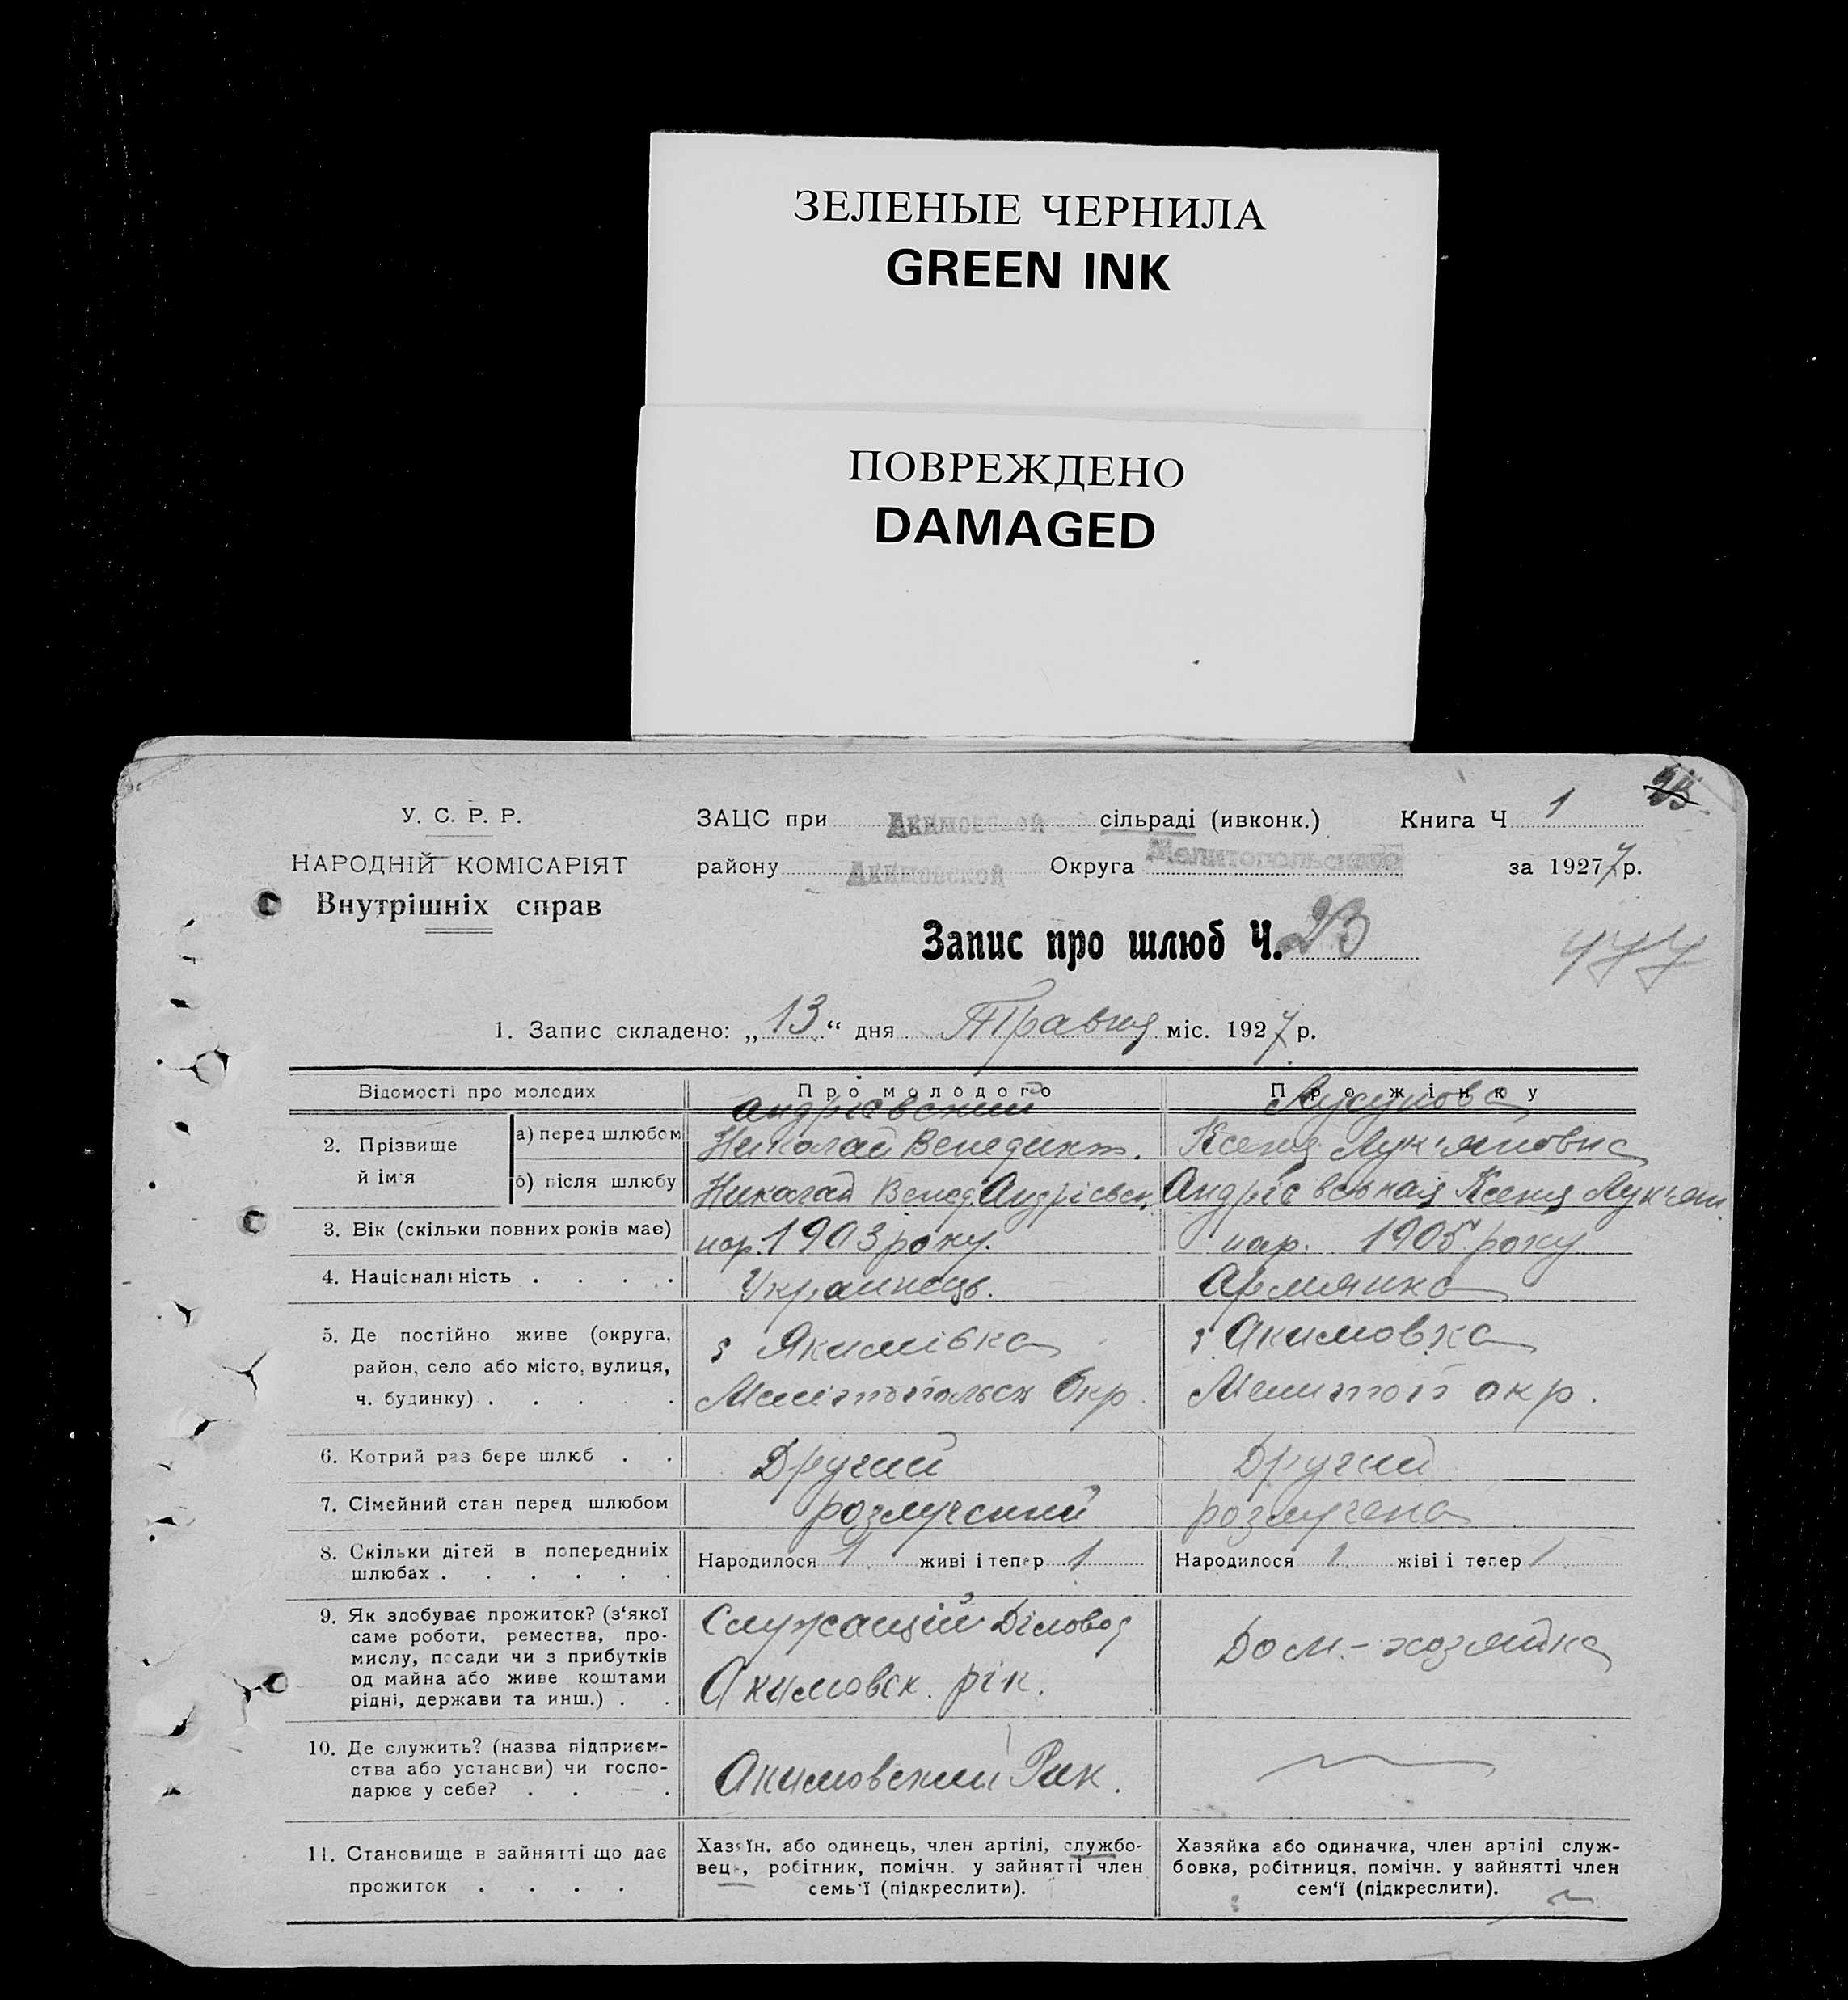 ЗЕЛЕНЫЕ ЧЕРНИЛА
GREEN INK
ПОВРЕЖДЕНО
DAMAGED
У. С. Р. Р.
НАРОДНІЙ КОМІСАРІЯТ
Внутрішніх справ
ЗАЦС при Акимовской сільраді (ивконк.) Книга Ч 1
району Акимовской Округа Мелитопольского за 1927 7 р.
Запис про шлюб Ч. 23
477
1. Запис складено: „13“ дня Травня міс. 1927 р.
Відомості про молодих
Про молодого
Про жінку
2. Прізвище й ім'я
а) перед шлюбом
Андрієвский
Николай Венедикт.
Ксения Лук'яновна
б) після шлюбу
Николай Венед. Андріевск.
Андріевськая Ксения Лук'ян.
3. Вік (скільки повних років має)
нар. 1903 року.
нар. 1905 року
4. Національність . . . .
Украинець.
Армянка
5. Де постійно живе (округа,
район, село або місто, вулиця,
ч. будинку) . . . . .
з Якимівка
Мелітопольск Окр.
з. Акимовка
Мелитоп окр.
6. Котрий раз бере шлюб . .
Другий
Другий
7. Сімейний стан перед шлюбом
розлучений
розлучена
8. Скільки дітей в попередніх
шлюбах . . . . . .
Народилося 1 живі і тепер 1
Народилося 1 жіві і тепер 1
9. Як здобуває прожиток? (з‘якої
саме роботи, ремества, про-
мислу, посади чи з прибутків
од майна або живе коштами
рідні, держави та инш.) . .
Служащій Діловод
Акимовск. рік.
Дом.-хозяйка
10. Де служить? (назва підприєм-
ства або установи) чи госпо-
дарює у себе? . . .
Акимовский Рик.
11. Становище в зайнятті що дає
прожиток . . . .
Хазяїн, або одинець, член артілі, службо-
вець, робітник, помічн. у зайнятті член
семь'ї (підкреслити).
Хазяйка або одиначка, член артілі служ-
бовка, робітниця, помічн. у зайнятті член
сем‘ї (підкреслити).